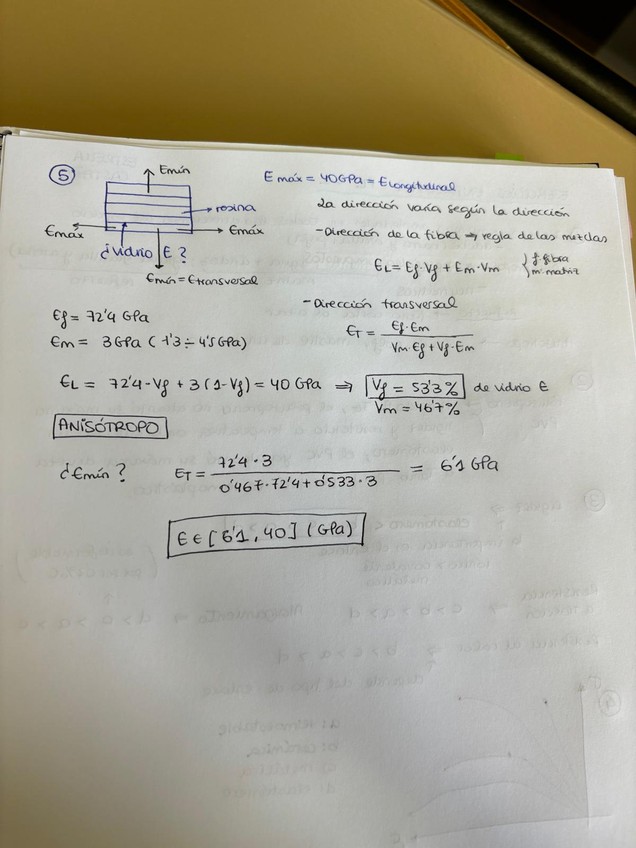 ⑤
Emín
E máx = 40GPa = E longitudinal
resina
Emáx
Emáx
¿vidrio E?
Emín = Etransversal
La dirección varía según la dirección
- Dirección de la fibra → regla de las mezclas
EL = Ef·Vf + Em·Vm { f: fibra
m: matriz
- Dirección transversal
ET = Ef·Em / Vm·Ef + Vf·Em
Ef = 72'4 GPa
Em = 3GPa (1'3 ÷ 4'5GPa)
EL = 72'4·Vf + 3(1-Vf) = 40 GPa ⇒ Vf = 53'3% de vidrio E
Vm = 46'7%
ANISÓTROPO
¿Emín? ET = 72'4·3 / 0'467·72'4+0'533·3 = 6'1 GPa
E ∈ [6'1, 40] (GPa)